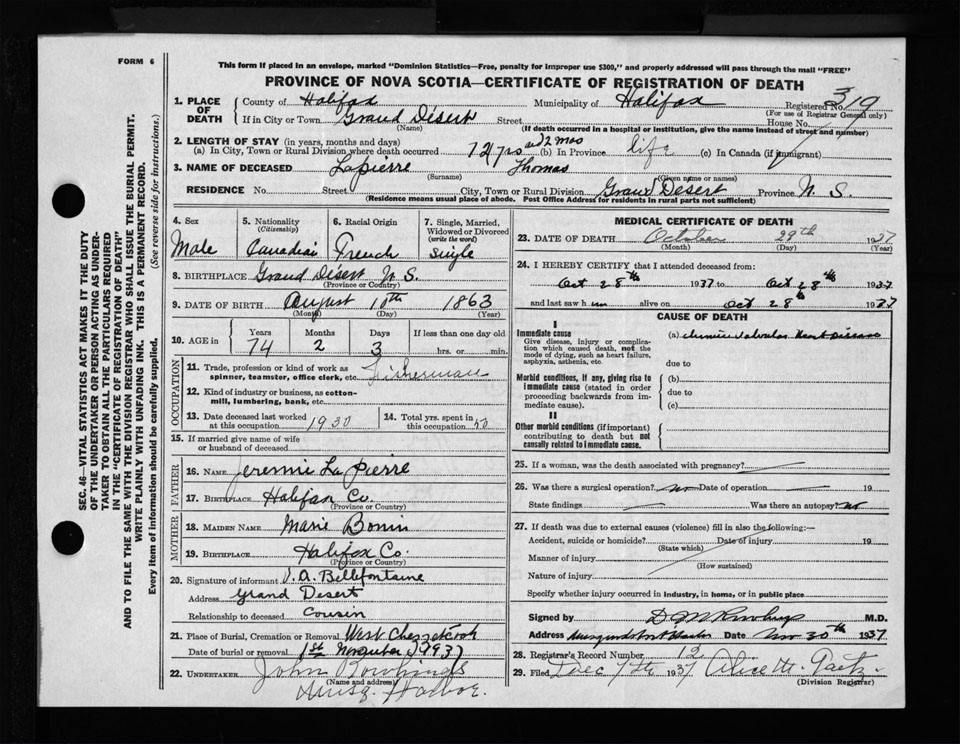 FORM 6
This form if placed in an envelope, marked "Dominion Statistics—Free, penalty for improper use $300," and properly addressed will pass through the mail "FREE"
PROVINCE OF NOVA SCOTIA—CERTIFICATE OF REGISTRATION OF DEATH
1. PLACE OF DEATH
County of Halifax Municipality of Halifax Registered No. 319
(For use of Registrar General only)
If in City or Town Grand Désert Street House No.
(Name) (If death occurred in a hospital or institution, give the name instead of street and number)
2. LENGTH OF STAY (in years, months and days)
(a) In City, Town or Rural Division where death occurred and 2 mos (b) In Province life (c) In Canada (if immigrant)
3. NAME OF DECEASED Lapierre Thomas
(Surname) (Given name or names)
RESIDENCE No. Street City, Town or Rural Division Grand Desert Province N. S.
(Residence means usual place of abode. Post Office Address for residents in rural parts not sufficient)
4. Sex
Male
5. Nationality
(Citizenship)
6. Racial Origin
French
7. Single, Married, Widowed or Divorced
(write the word)
Single
8. BIRTHPLACE Grand Désert N. S.
(Province or Country)
9. DATE OF BIRTH August 1863
(Month) (Day) (Year)
10. AGE in
Years Months Days If less than one day old
74 2 3 hrs. or min.
OCCUPATION
11. Trade, profession or kind of work as spinner, teamster, office clerk, etc. Fisherman
12. Kind of industry or business, as cotton-mill, lumbering, bank, etc.
13. Date deceased last worked at this occupation 1930
14. Total yrs. spent in this occupation 50
15. If married give name of wife or husband of deceased
FATHER
16. NAME Jeremie La Pierre
17. BIRTHPLACE Halifax Co.
MOTHER
18. MAIDEN NAME Marie Bonin
19. BIRTHPLACE Halifax Co.
(Province or Country)
20. Signature of informant A. Bellefontaine
Address Grand Desert
Relationship to deceased Cousin
21. Place of Burial, Cremation or Removal West Chezzetcook
Date of burial or removal 1st November 1937
22. UNDERTAKER John
(Name and address)
Musq. Harbor.
MEDICAL CERTIFICATE OF DEATH
23. DATE OF DEATH October 29th 1937
(Month) (Day) (Year)
24. I HEREBY CERTIFY that I attended deceased from:
Oct 28th 1937 to Oct 28th 1937
and last saw him alive on Oct 28th 1937
CAUSE OF DEATH
I
Immediate cause
Give disease, injury or complication which caused death, not the mode of dying, such as heart failure, asphyxia, asthenia, etc.
(a) Chronic Valvular Heart Disease
due to
Morbid conditions, if any, giving rise to immediate cause (stated in order proceeding backwards from immediate cause).
(b)
due to
(c)
II
Other morbid conditions (if important) contributing to death but not causally related to immediate cause.
25. If a woman, was the death associated with pregnancy?
26. Was there a surgical operation? no Date of operation 19
State findings Was there an autopsy? no
27. If death was due to external causes (violence) fill in also the following:—
Accident, suicide or homicide? Date of injury 19
(State which)
Manner of injury
(How sustained)
Nature of injury
Specify whether injury occurred in industry, in home, or in public place
Signed by M.D.
Address Date Nov 30th 1937
28. Registrar's Record Number 12
29. Filed Dec 7th 1937 Alice M.
(Division Registrar)
SEC. 46—VITAL STATISTICS ACT MAKES IT THE DUTY
OF THE UNDERTAKER OR PERSON ACTING AS UNDER-
TAKER TO OBTAIN ALL THE PARTICULARS REQUIRED
IN THE "CERTIFICATE OF REGISTRATION OF DEATH"
AND TO FILE THE SAME WITH THE DIVISION REGISTRAR WHO SHALL ISSUE THE BURIAL PERMIT.
WRITE PLAINLY WITH UNFADING INK. THIS IS A PERMANENT RECORD.
Every item of information should be carefully supplied. (See reverse side for instructions.)